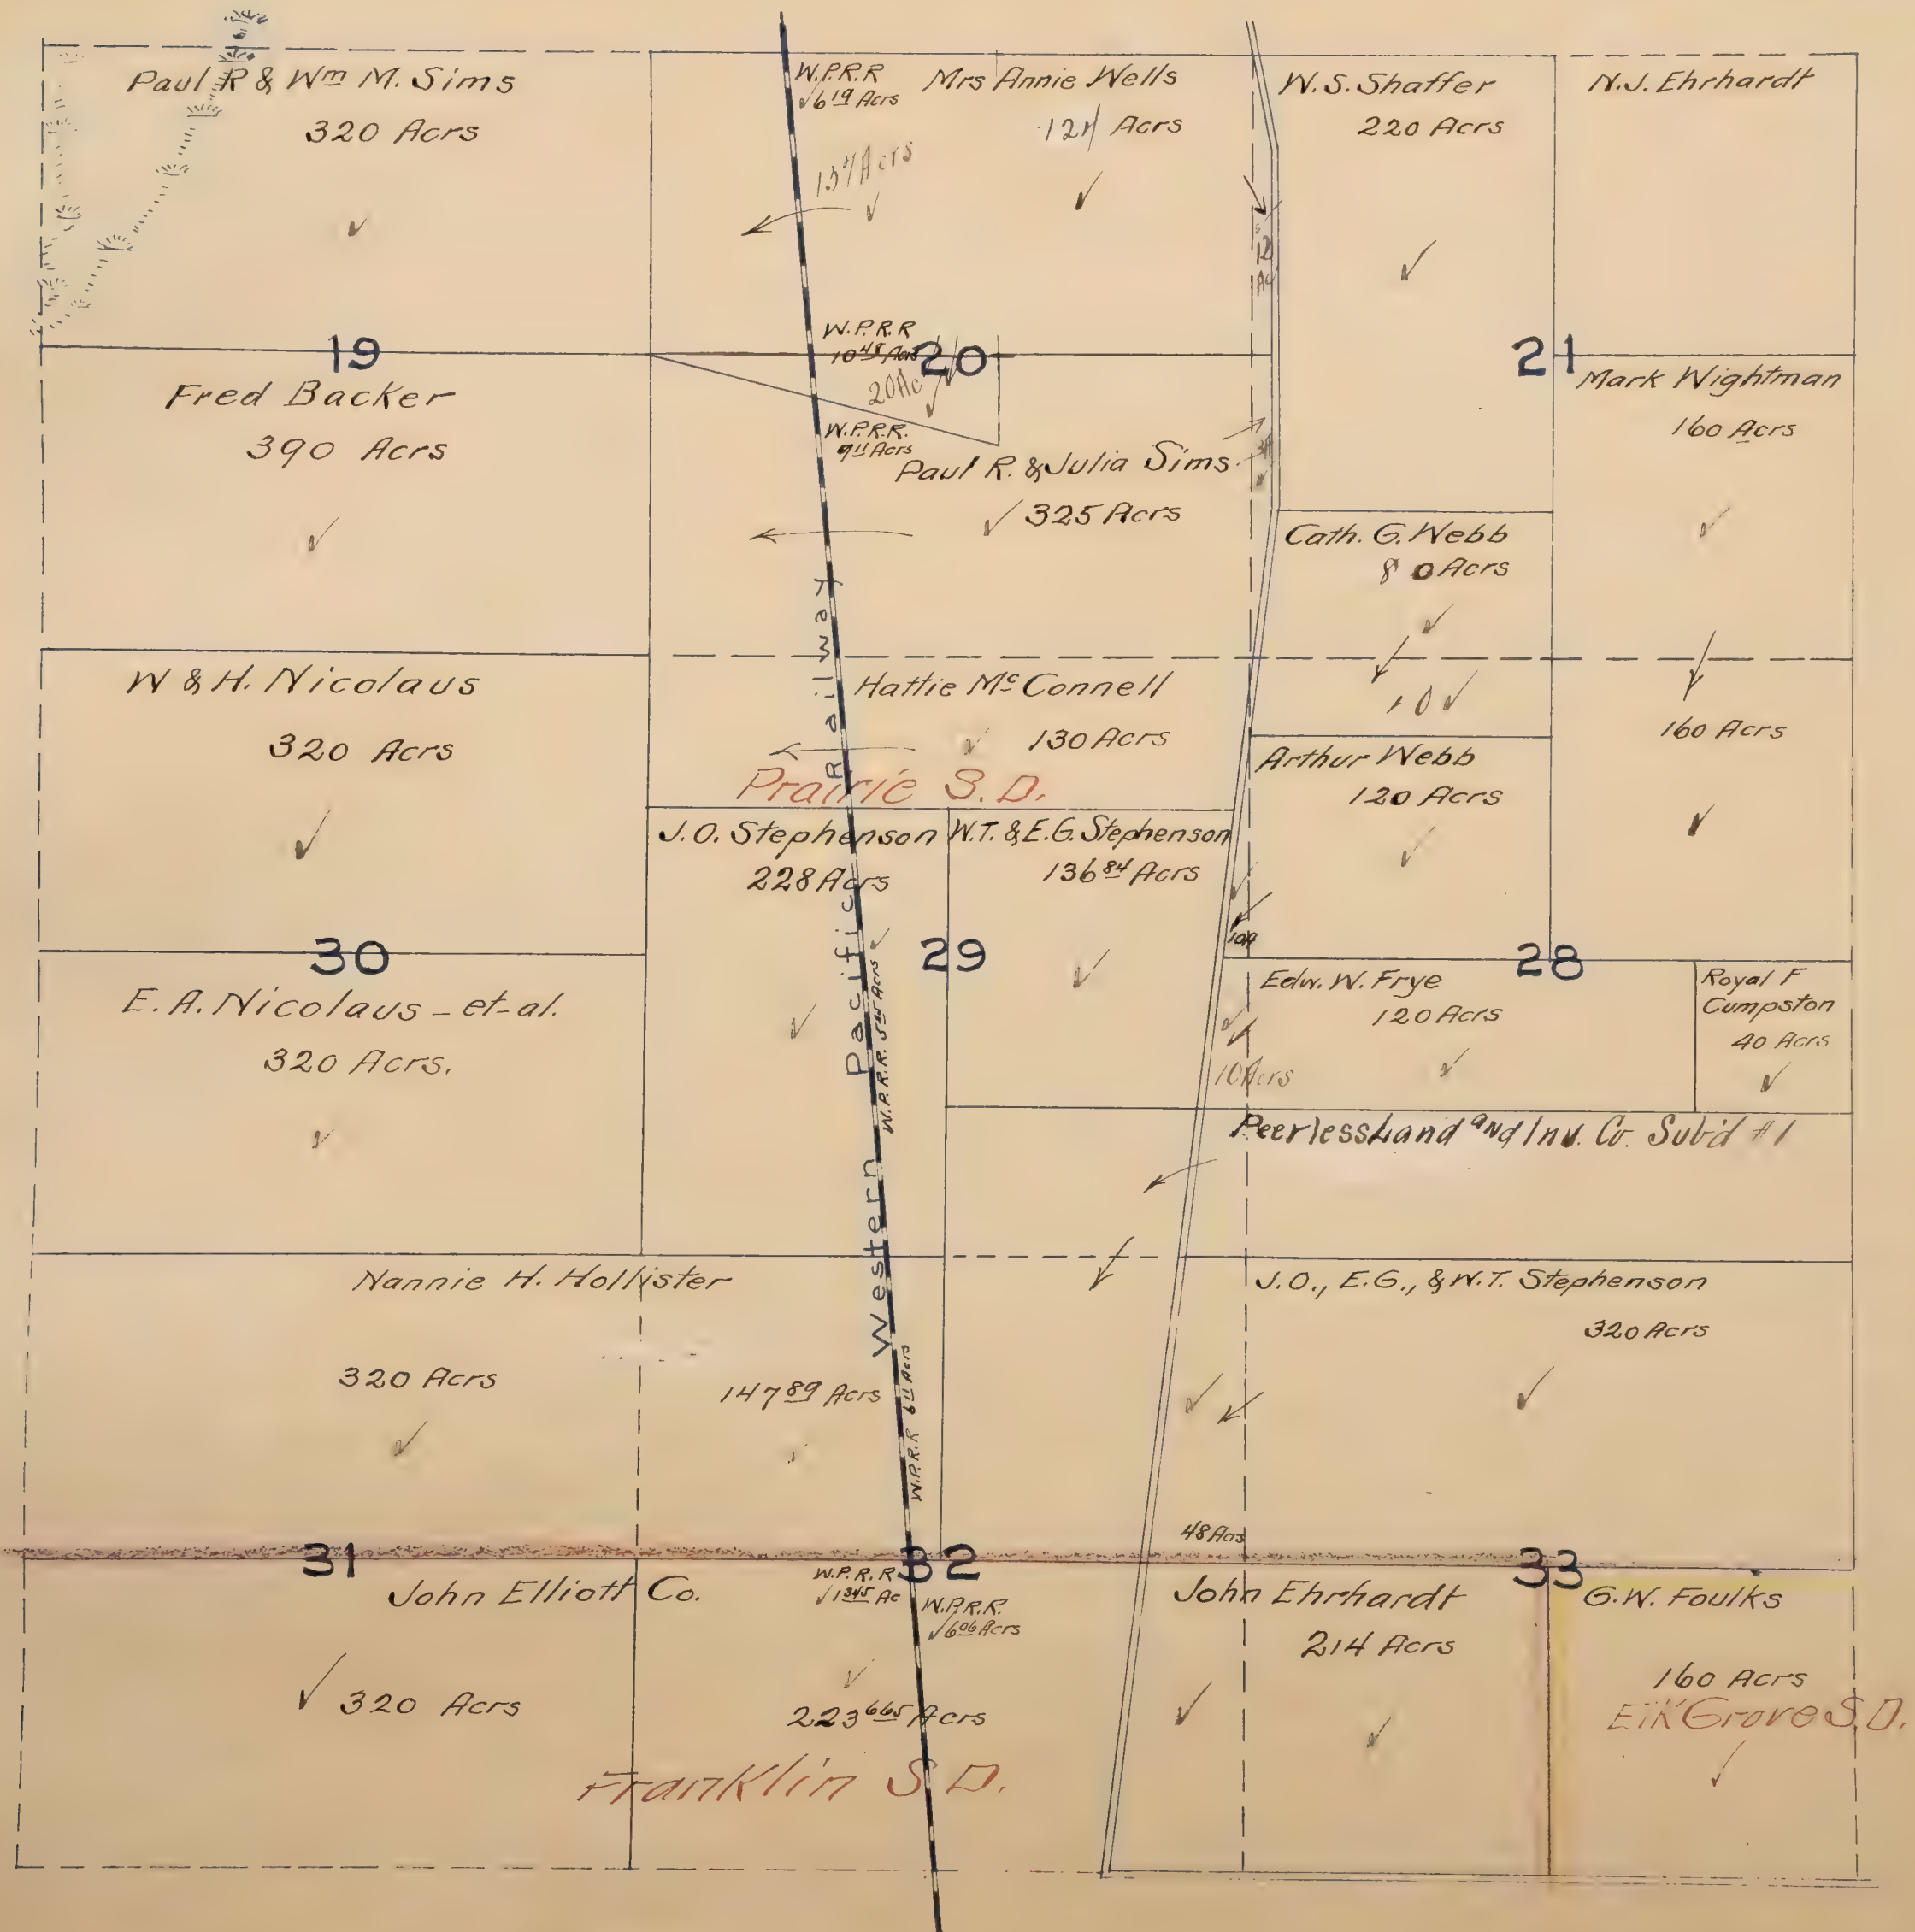 Paul R & Wm M. Sims
320 Acrs
W.P.R.R
6 19 Acrs
Mrs Annie Wells
Acrs
137 Acrs
W.S. Shaffer
220 Acrs
N.J. Ehrhardt
12
Ac
19
W.P.R.R
10 48 Acrs
20
20 Ac
21
Fred Backer
390 Acrs
W.P.R.R.
9 11 Acrs
Paul R. & Julia Sims
325 Acrs
Mark Wightman
160 Acrs
Cath. G. Webb
80 Acrs
W & H. Nicolaus
320 Acrs
Hattie Mc Connell
130 Acrs
Prairie S.D.
10
160 Acrs
Arthur Webb
120 Acrs
J.O. Stephenson
228 Acrs
W.T. & E.G. Stephenson
136 84 Acrs
10A
30
29
28
Western Pacific Railway
W.P.R.R. 5 45 Acrs
E.A. Nicolaus - et-al.
320 Acrs.
Edw. W. Frye
120 Acrs
10 Acrs
Royal F
Cumpston
40 Acrs
Peerless Land and Inv. Co. Sub'd #1
Nannie H. Hollister
320 Acrs
147 89 Acrs
W.P.R.R 6 11 Acrs
J.O., E.G., & W.T. Stephenson
320 Acrs
48 Acrs
31
32
33
John Elliott Co.
320 Acrs
W.P.R.R.
Ac
W.P.R.R.
6 06 Acrs
223 665 Acrs
John Ehrhardt
214 Acrs
G.W. Foulks
160 Acrs
Elk Grove S.D.
Franklin S.D.